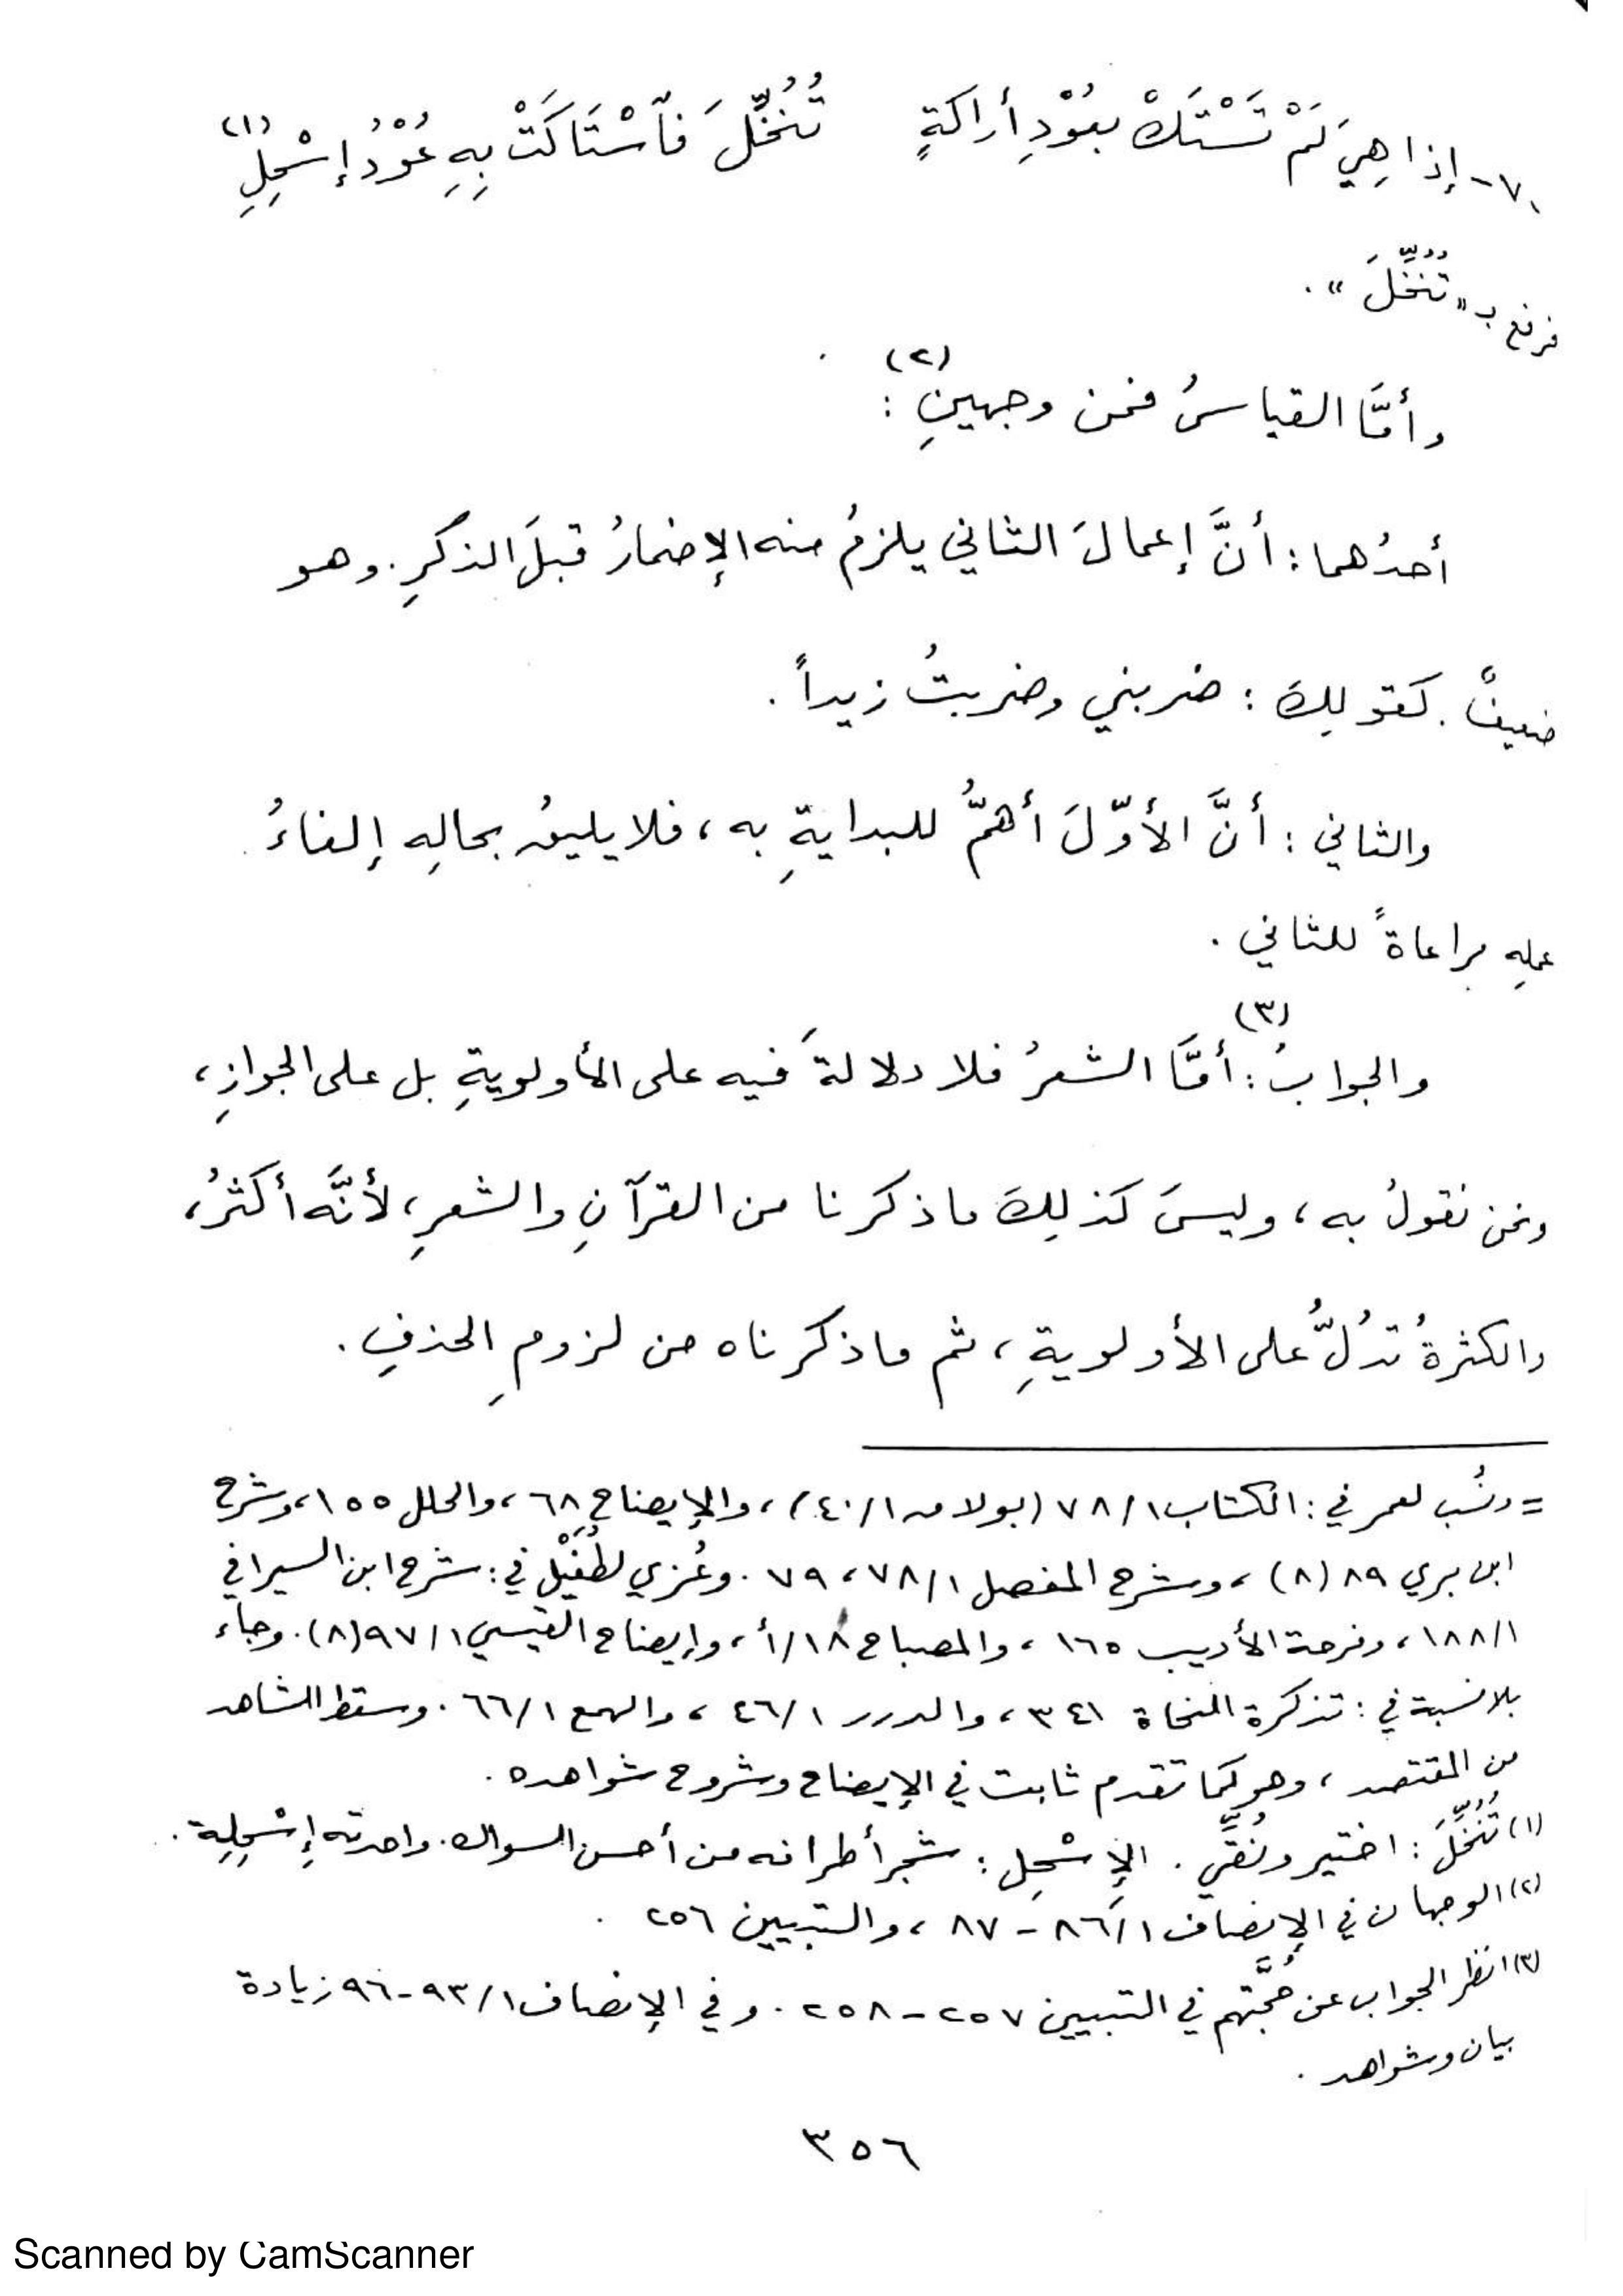 ٧٠- إذا هِيَ لَمْ تَسْتَكْ بعُوْدِ أراكَةٍ تُنُخِّلَ فَآسْتَاكَتْ بِهِ عُوْدُ إسْحِلِ (١)
فرفع بـ «تُنُخِّلَ» .
وأمَّا القياسُ فمن وجهينِ (٢) :
أحدُهما : أنَّ إعمالَ الثاني يلزمُ منه الإضمارُ قبلَ الذكرِ . وهو
ضعيفٌ . كقولِكَ : ضربني وضربتُ زيداً .
والثاني : أنَّ الأوّلَ أهمُّ للبدايةِ به ، فلا يليقُ بحالِه إلغاءُ
عملِه مراعاةً للثاني .
والجوابُ (٣) : أمَّا الشعرُ فلا دلالةَ فيه على الأولويةِ بل على الجوازِ ،
ونحن نقولُ به ، وليسَ كذلِكَ ما ذكرنا من القرآنِ والشعرِ ، لأنَّه أكثرُ ،
والكثرةُ تدُلُّ على الأولويةِ ، ثم ما ذكرناه من لزومِ الحذفِ .
= ونُسب لعمر في : الكتاب ١/ ٧٨ (بولاق ١/ ٤٠) ، والإيضاح ٦٨ ، والحلل ١٥٥ ، وشرح
ابن بري ٨٩ (٨) ، وشرح المفصل ١/ ٧٨ ، ٧٩ . وعُزي لطُفَيْل في : شرح ابن السيرافي
١/ ١٨٨ ، وفرحة الأديب ١٦٥ ، والمصباح ١٨/أ ، وإيضاح القيسي ١/ ٩٧ (٨) . وجاء
بلا نسبة في : تذكرة النحاة ٣٤١ ، والدرر ١/ ٤٦ ، والهمع ١/ ٦٦ . وسقط الشاهد
من المقتصد ، وهو كما تقدم ثابت في الإيضاح وشروح شواهده .
(١) تُنُخِّلَ : اختير ونُقِّي . الإِسْحِل : شجر أطرافه من أحسن السواك . واحدته إِسْحِلِة .
(٢) الوجهان في الإنصاف ١/ ٨٦ - ٨٧ ، والتبيين ٢٥٦ .
(٣) انظر الجواب عن حُجَّتهم في التبيين ٢٥٧ - ٢٥٨ . وفي الإنصاف ١/ ٩٣ - ٩٦ زيادة
بيان وشواهد .
٣٥٦
Scanned by CamScanner